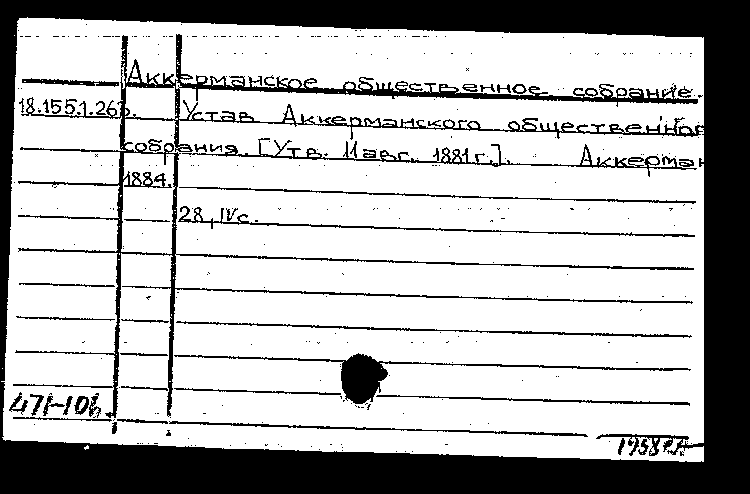 Аккерманское общественное собрание.
18.155.1.263. Устав Аккерманского общественног
собрания. [Утв. 11 авг. 1881 г.]. Аккерман
1884.
28, IV с.
471-10б.